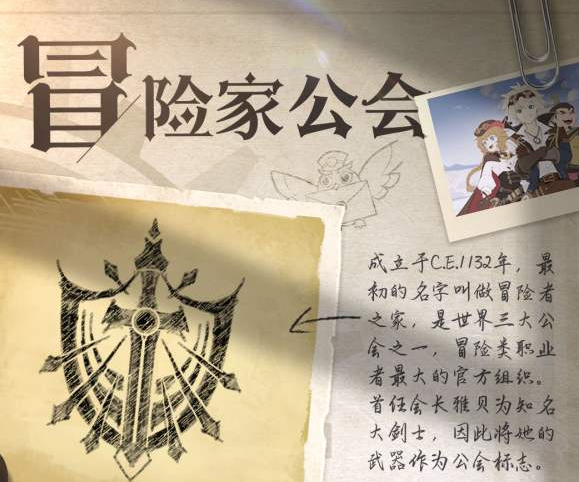 冒险家公会
成立于C.E.1132年，最
初的名字叫做冒险者
之家，是世界三大公
会之一，冒险类职业
者最大的官方组织。
首任会长雅贝为知名
大剑士，因此将她的
武器作为公会标志。